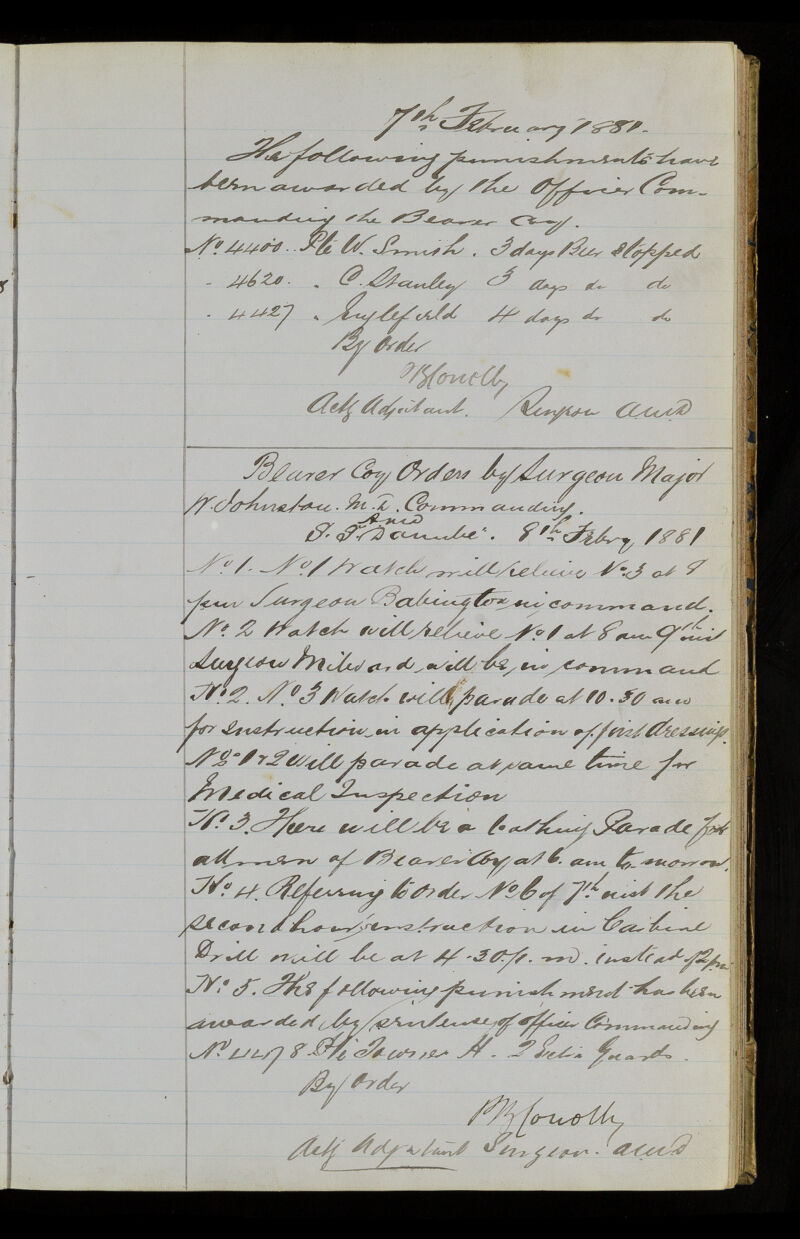 7th February 1881.
The following punishments have
been awarded by the Officer Com-
manding the Bearer Coy.
No. 4400. Pte W. Smith. 3 days Beer stopped
" 4620. " C. Stanley 3 days do do
" 4427 " Englefield 4 days do do
By Order
BConolly
Actg Adjutant. Surgeon AMD
Bearer Coy Orders by Surgeon Major
W. Johnston. M.D. Commanding.
S.S. Danube. 8th Febry 1881
No 1. No 1 Watch will relieve No 3 at 8
pm Surgeon Babington in command.
No. 2 Watch will relieve No 1 at 8 am 9th inst
Surgeon Milward will be in command
No 2. No 3 Watch will parade at 10.30 am
for instruction in application of first dressings.
Nos 1 & 2 will parade at same time for
Medical Inspection
No. 3. There will be a bathing Parade for
all men of Bearer Coy at 6. am to-morrow.
No 4. Referring to Order No 6 of 7th inst the
second hour instruction in Carbine
Drill will be at 4.30 p.m. instead of 2 pm
No. 5. The following punishment has been
awarded by sentence of Officer Commanding
No 4478 Pte Towner H. 2 Extra Guards.
By Order
BConolly
Actg Adjutant Surgeon. AMD